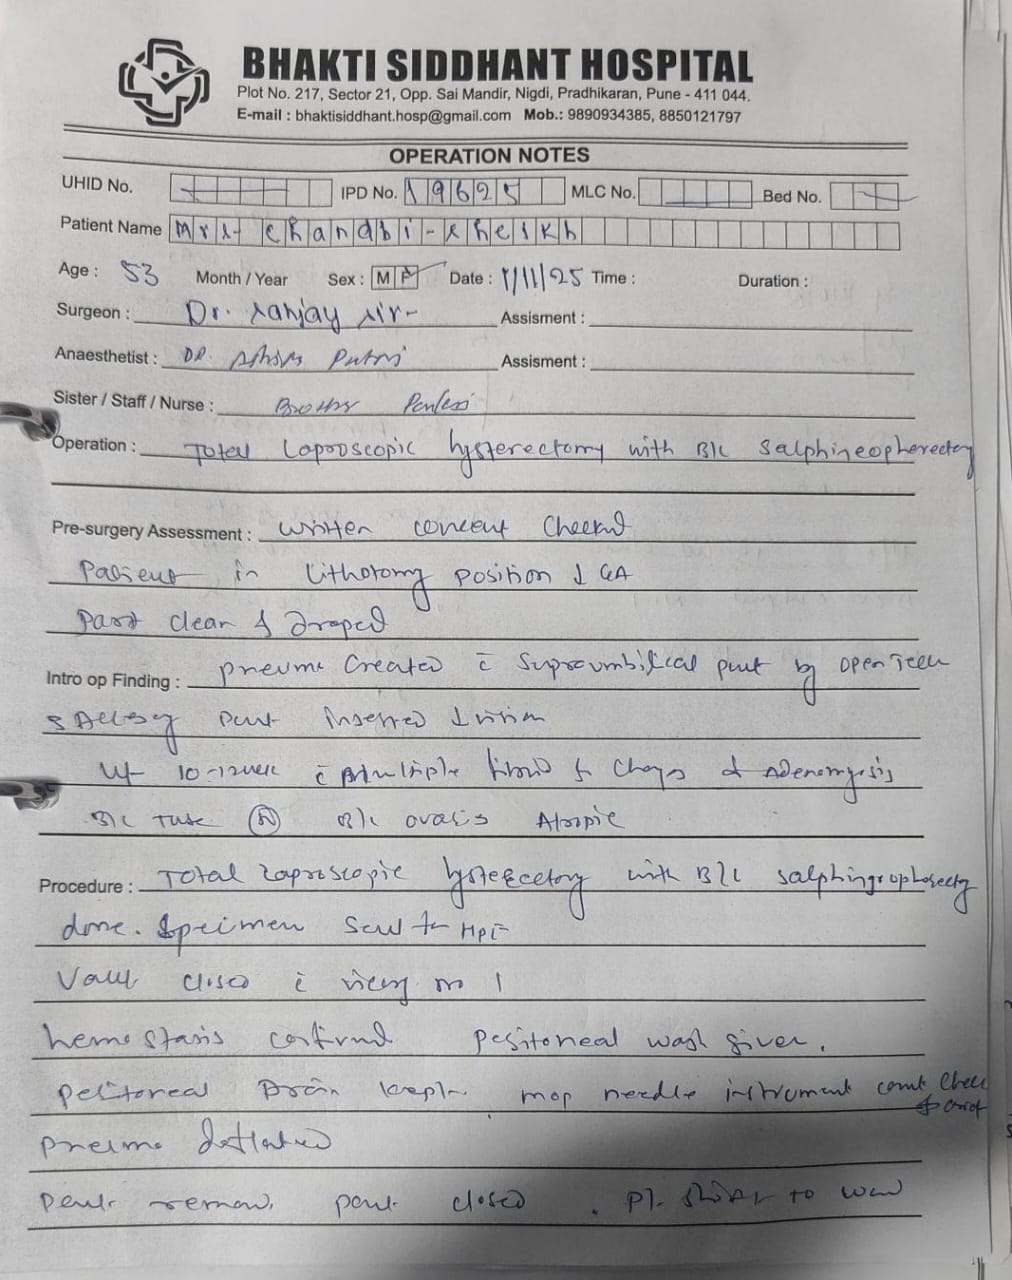 BHAKTI SIDDHANT HOSPITAL
Plot No. 217, Sector 21, Opp. Sai Mandir, Nigdi, Pradhikaran, Pune - 411 044.
E-mail : bhaktisiddhant.hosp@gmail.com Mob.: 9890934385, 8850121797
OPERATION NOTES
UHID No. IPD No. 19625 MLC No. Bed No.
Patient Name Mrs. chandbi - sheikh
Age : 53 Month / Year Sex : M F Date : /11/25 Time : Duration :
Surgeon : Dr. sanjay sir Assisment :
Anaesthetist : DR. Assisment :
Sister / Staff / Nurse : Brother
Operation : Total Laproscopic hysterectomy with B/L salphineopherectomy
Pre-surgery Assessment : written concent checked
Patient in lithotomy position GA
Part clean & draped
Intro op Finding : pneumo created c̄ supraumbilical port by open
port inserted
10-12 week c̄ multiple & adenomyosis
B/L tube Ⓝ B/L ovaries Atropic
Procedure : Total Laproscopic with B/L
done. Specimen sent to HPE
Vault closed c̄ vicry no 1
hemostasis peritoneal wash given.
peritoneal Drain kept mop needle instrument count
pneumo deflated
port port closed . pt. to ward